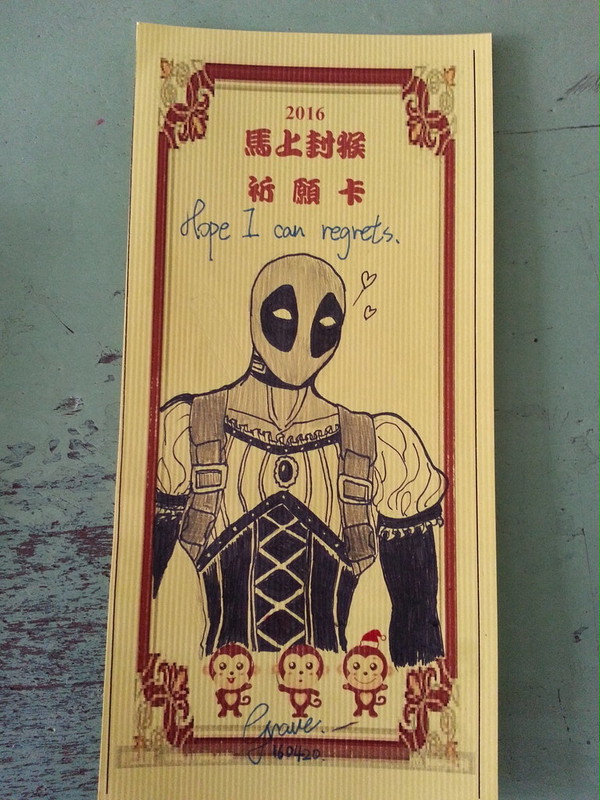 2016
馬上封猴
祈願卡
Hope I can regrets.
Grave.
160420.